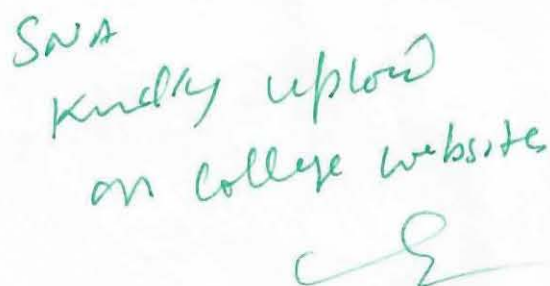 SNA
Kindly upload
on college websites